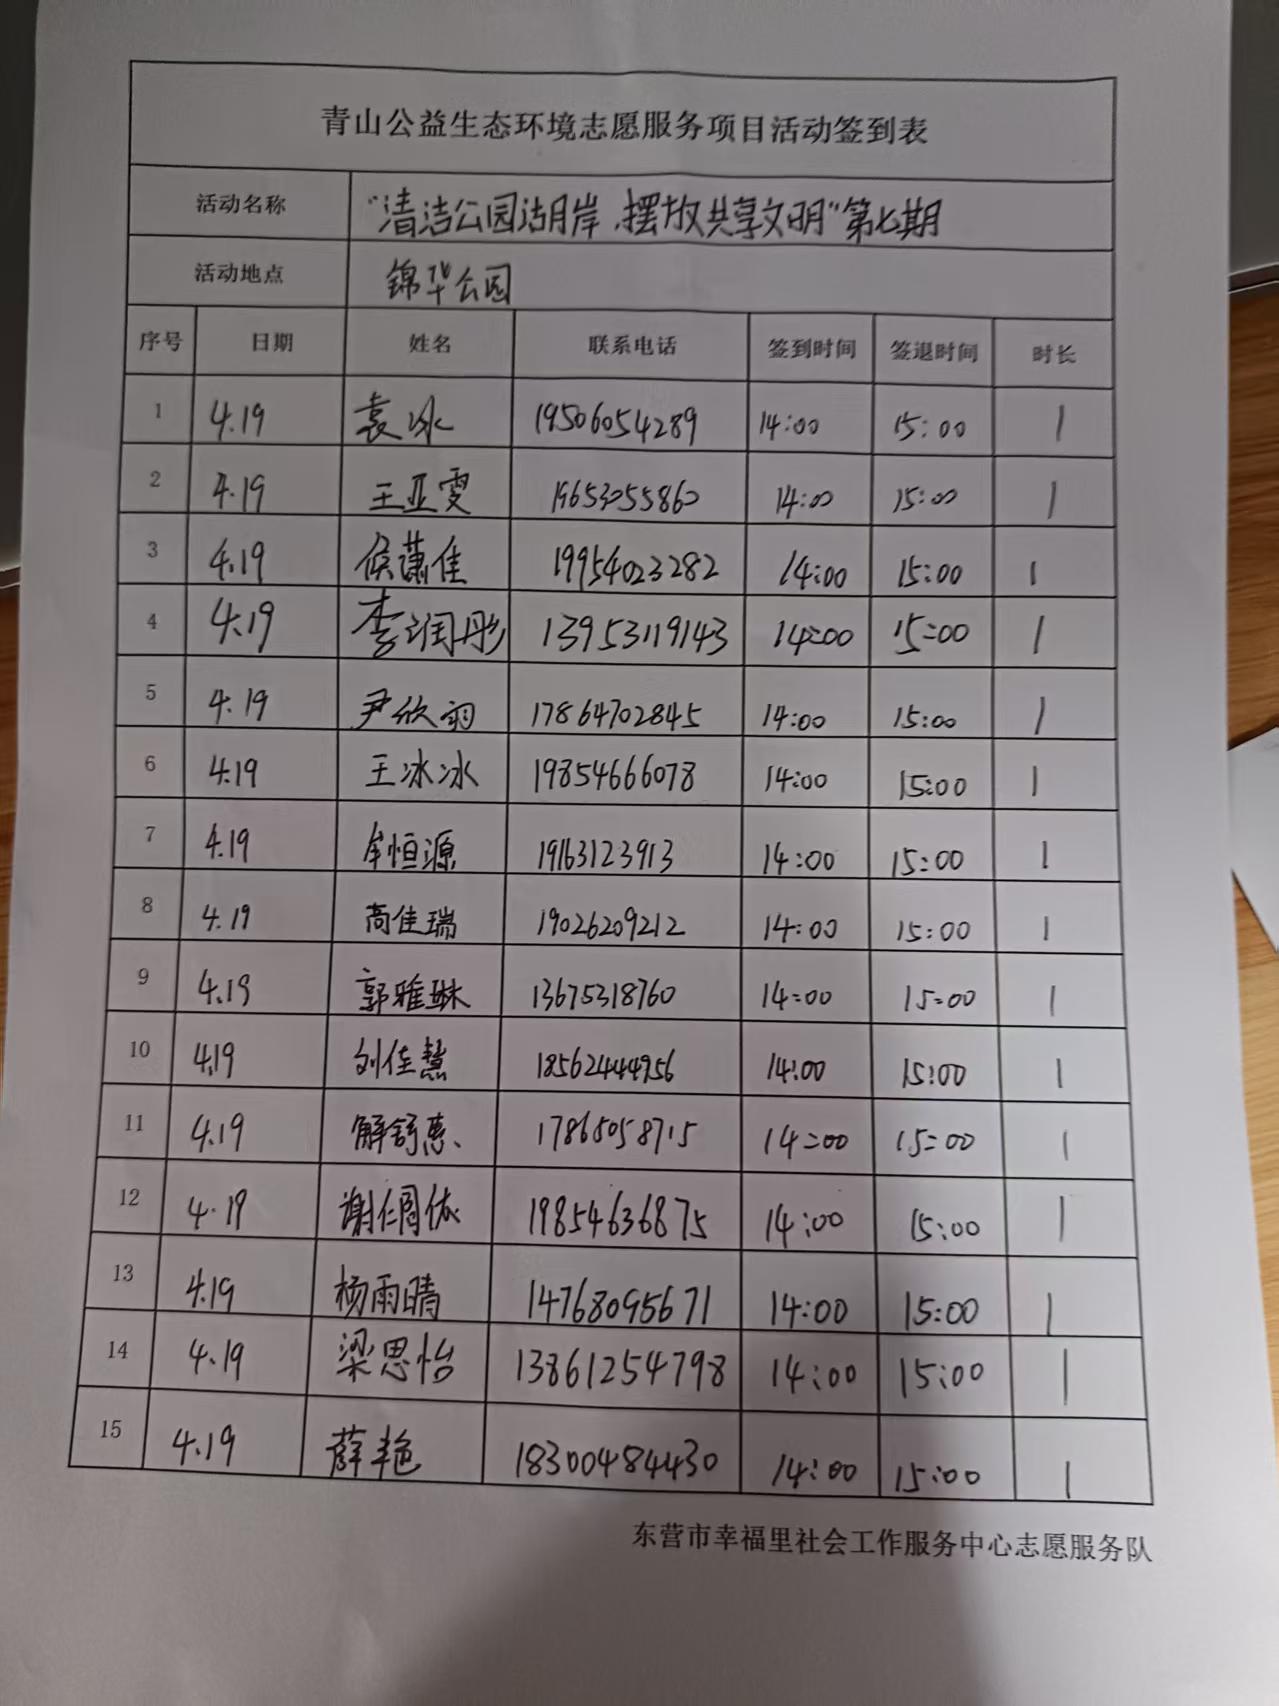 青山公益生态环境志愿服务项目活动签到表
活动名称 “清洁公园湖岸，摆放共享文明”第七期
活动地点 锦华公园
序号 日期 姓名 联系电话 签到时间 签退时间 时长
1 4.19 袁冰 19506054289 14:00 15:00 1
2 4.19 王亚雯 19653055860 14:00 15:00 1
3 4.19 侯潇佳 19954023282 14:00 15:00 1
4 4.19 李润彤 13953119143 14:00 15:00 1
5 4.19 尹欣羽 17864702845 14:00 15:00 1
6 4.19 王冰冰 19854666078 14:00 15:00 1
7 4.19 牟恒源 19163123913 14:00 15:00 1
8 4.19 高佳瑞 19026209212 14:00 15:00 1
9 4.19 郭雅琳 13675318760 14:00 15:00 1
10 4.19 刘佳慧 18562444956 14:00 15:00 1
11 4.19 解舒惠 17865058715 14:00 15:00 1
12 4.19 谢 依 19854636875 14:00 15:00 1
13 4.19 杨雨晴 14768095671 14:00 15:00 1
14 4.19 梁思怡 13861254798 14:00 15:00 1
15 4.19 薛艳 18300484430 14:00 15:00 1
东营市幸福里社会工作服务中心志愿服务队